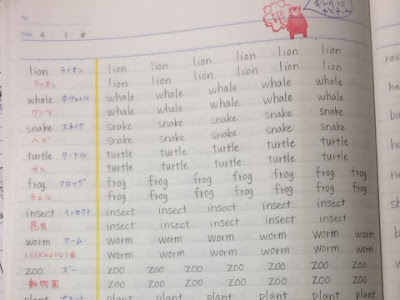 No.
Date 4・1・水
lion ライオン lion lion lion lion lion
ライオン lion lion lion lion lion
whale ホウェイル whale whale whale whale whale
クジラ whale whale whale whale whale
snake スネイク snake snake snake snake snake
ヘビ snake snake snake snake snake
turtle タートル turtle turtle turtle turtle turtle
カメ turtle turtle turtle turtle turtle
frog フロッグ frog frog frog frog frog frog
カエル frog frog frog frog frog frog
insect インセクト insect insect insect insect insect
昆虫 insect insect insect insect insect
worm ワーム worm worm worm worm worm worm
(ミミズのような)虫 worm worm worm worm worm worm
zoo ズー zoo zoo zoo zoo zoo zoo
動物園 zoo zoo zoo zoo zoo zoo
plant plant plant plant plant plant